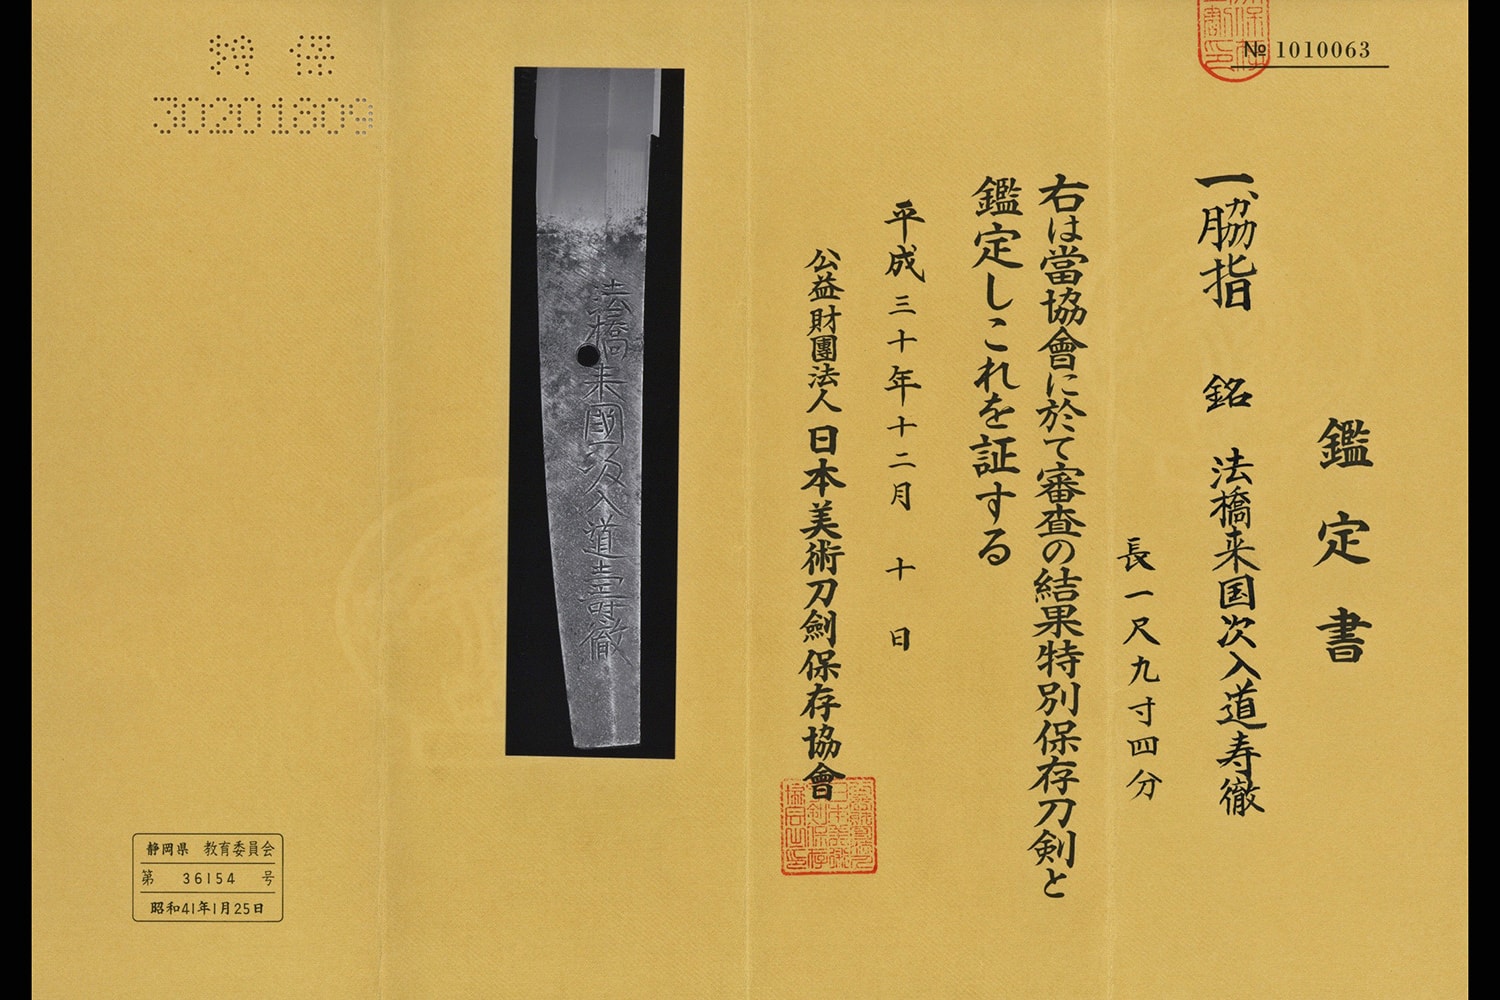 № 1010063
鑑定書
一、脇指 銘 法橋来国次入道寿徹
長一尺九寸四分
右は當協會に於て審査の結果特別保存刀剣と
鑑定しこれを証する
平成三十年十二月 十 日
公益財團法人日本美術刀劍保存協會
法橋来國次入道壽徹
特 保
30201809
静岡県 教育委員会
第 36154 号
昭和41年1月25日